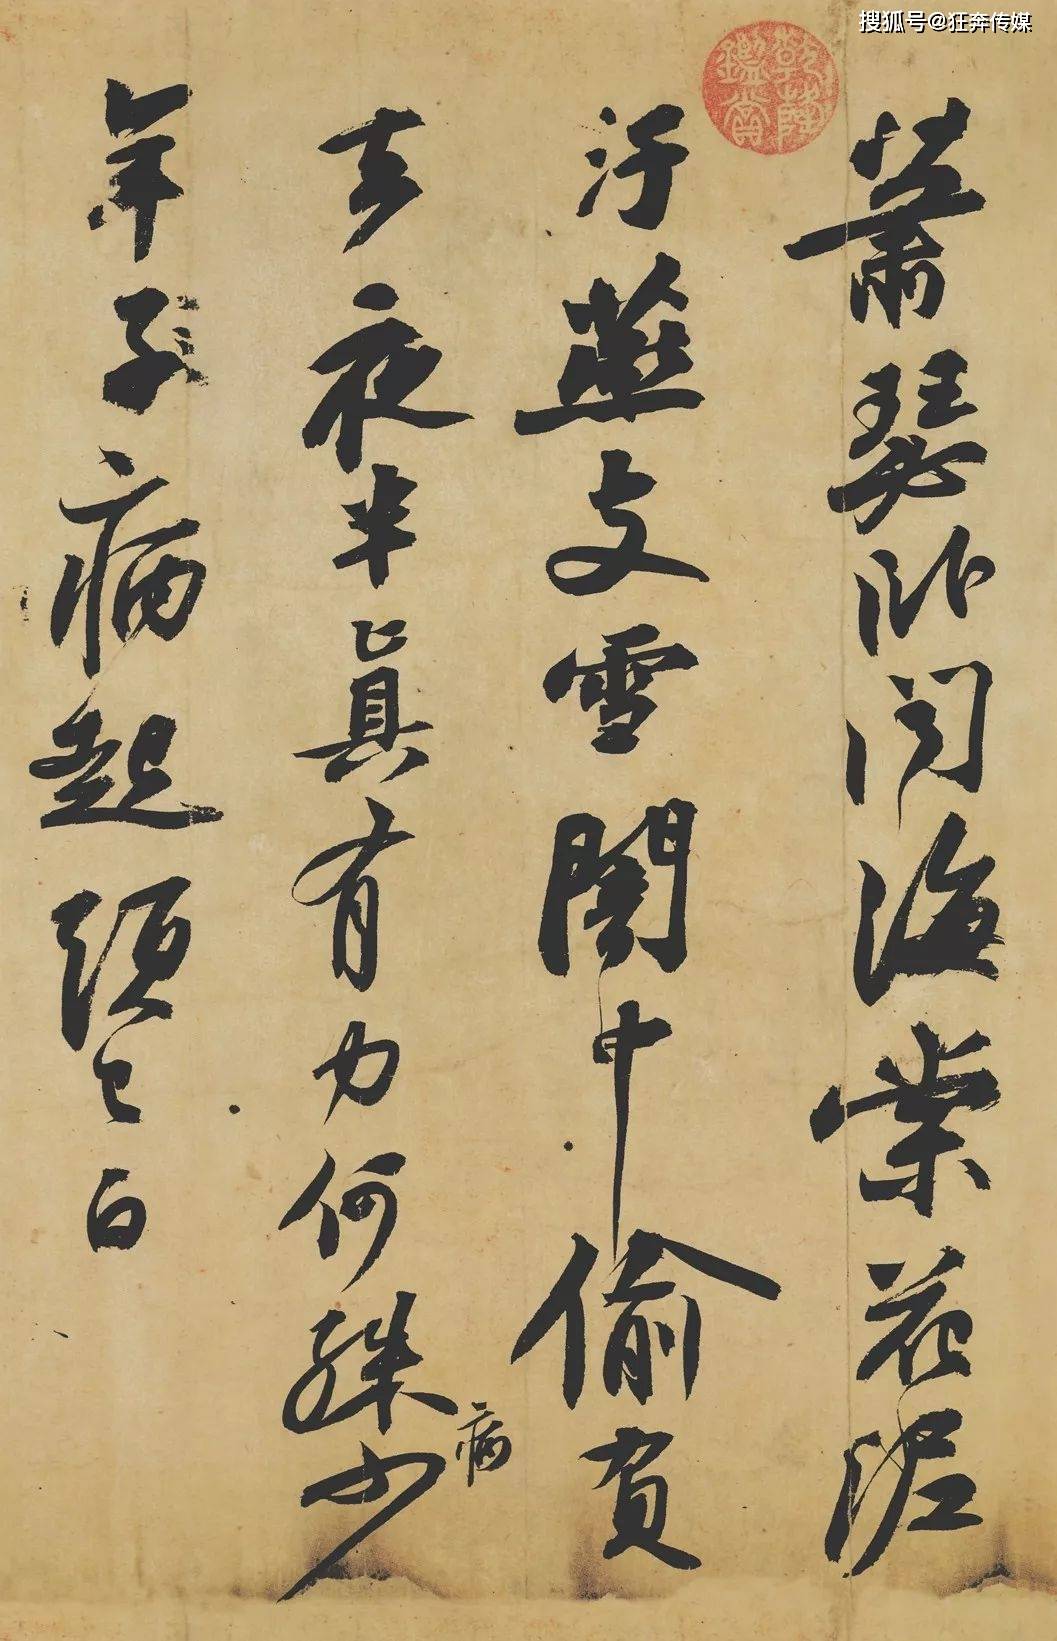 搜狐号@狂奔传媒
乾隆鑑賞
蕭瑟卧聞海棠花泥
汙燕支雪闇中偷負
去夜半眞有力何殊少
病
年子病起頭已白